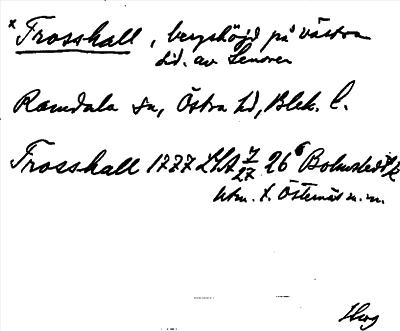 * Trosshall, bergshöjd på västra
sid. av Senoren
Ramdala sn, Östra hd, Blek. l.
Trosshall 1777 LSA 26 Bolmstedt
Utm. t. Östernäs m.m.